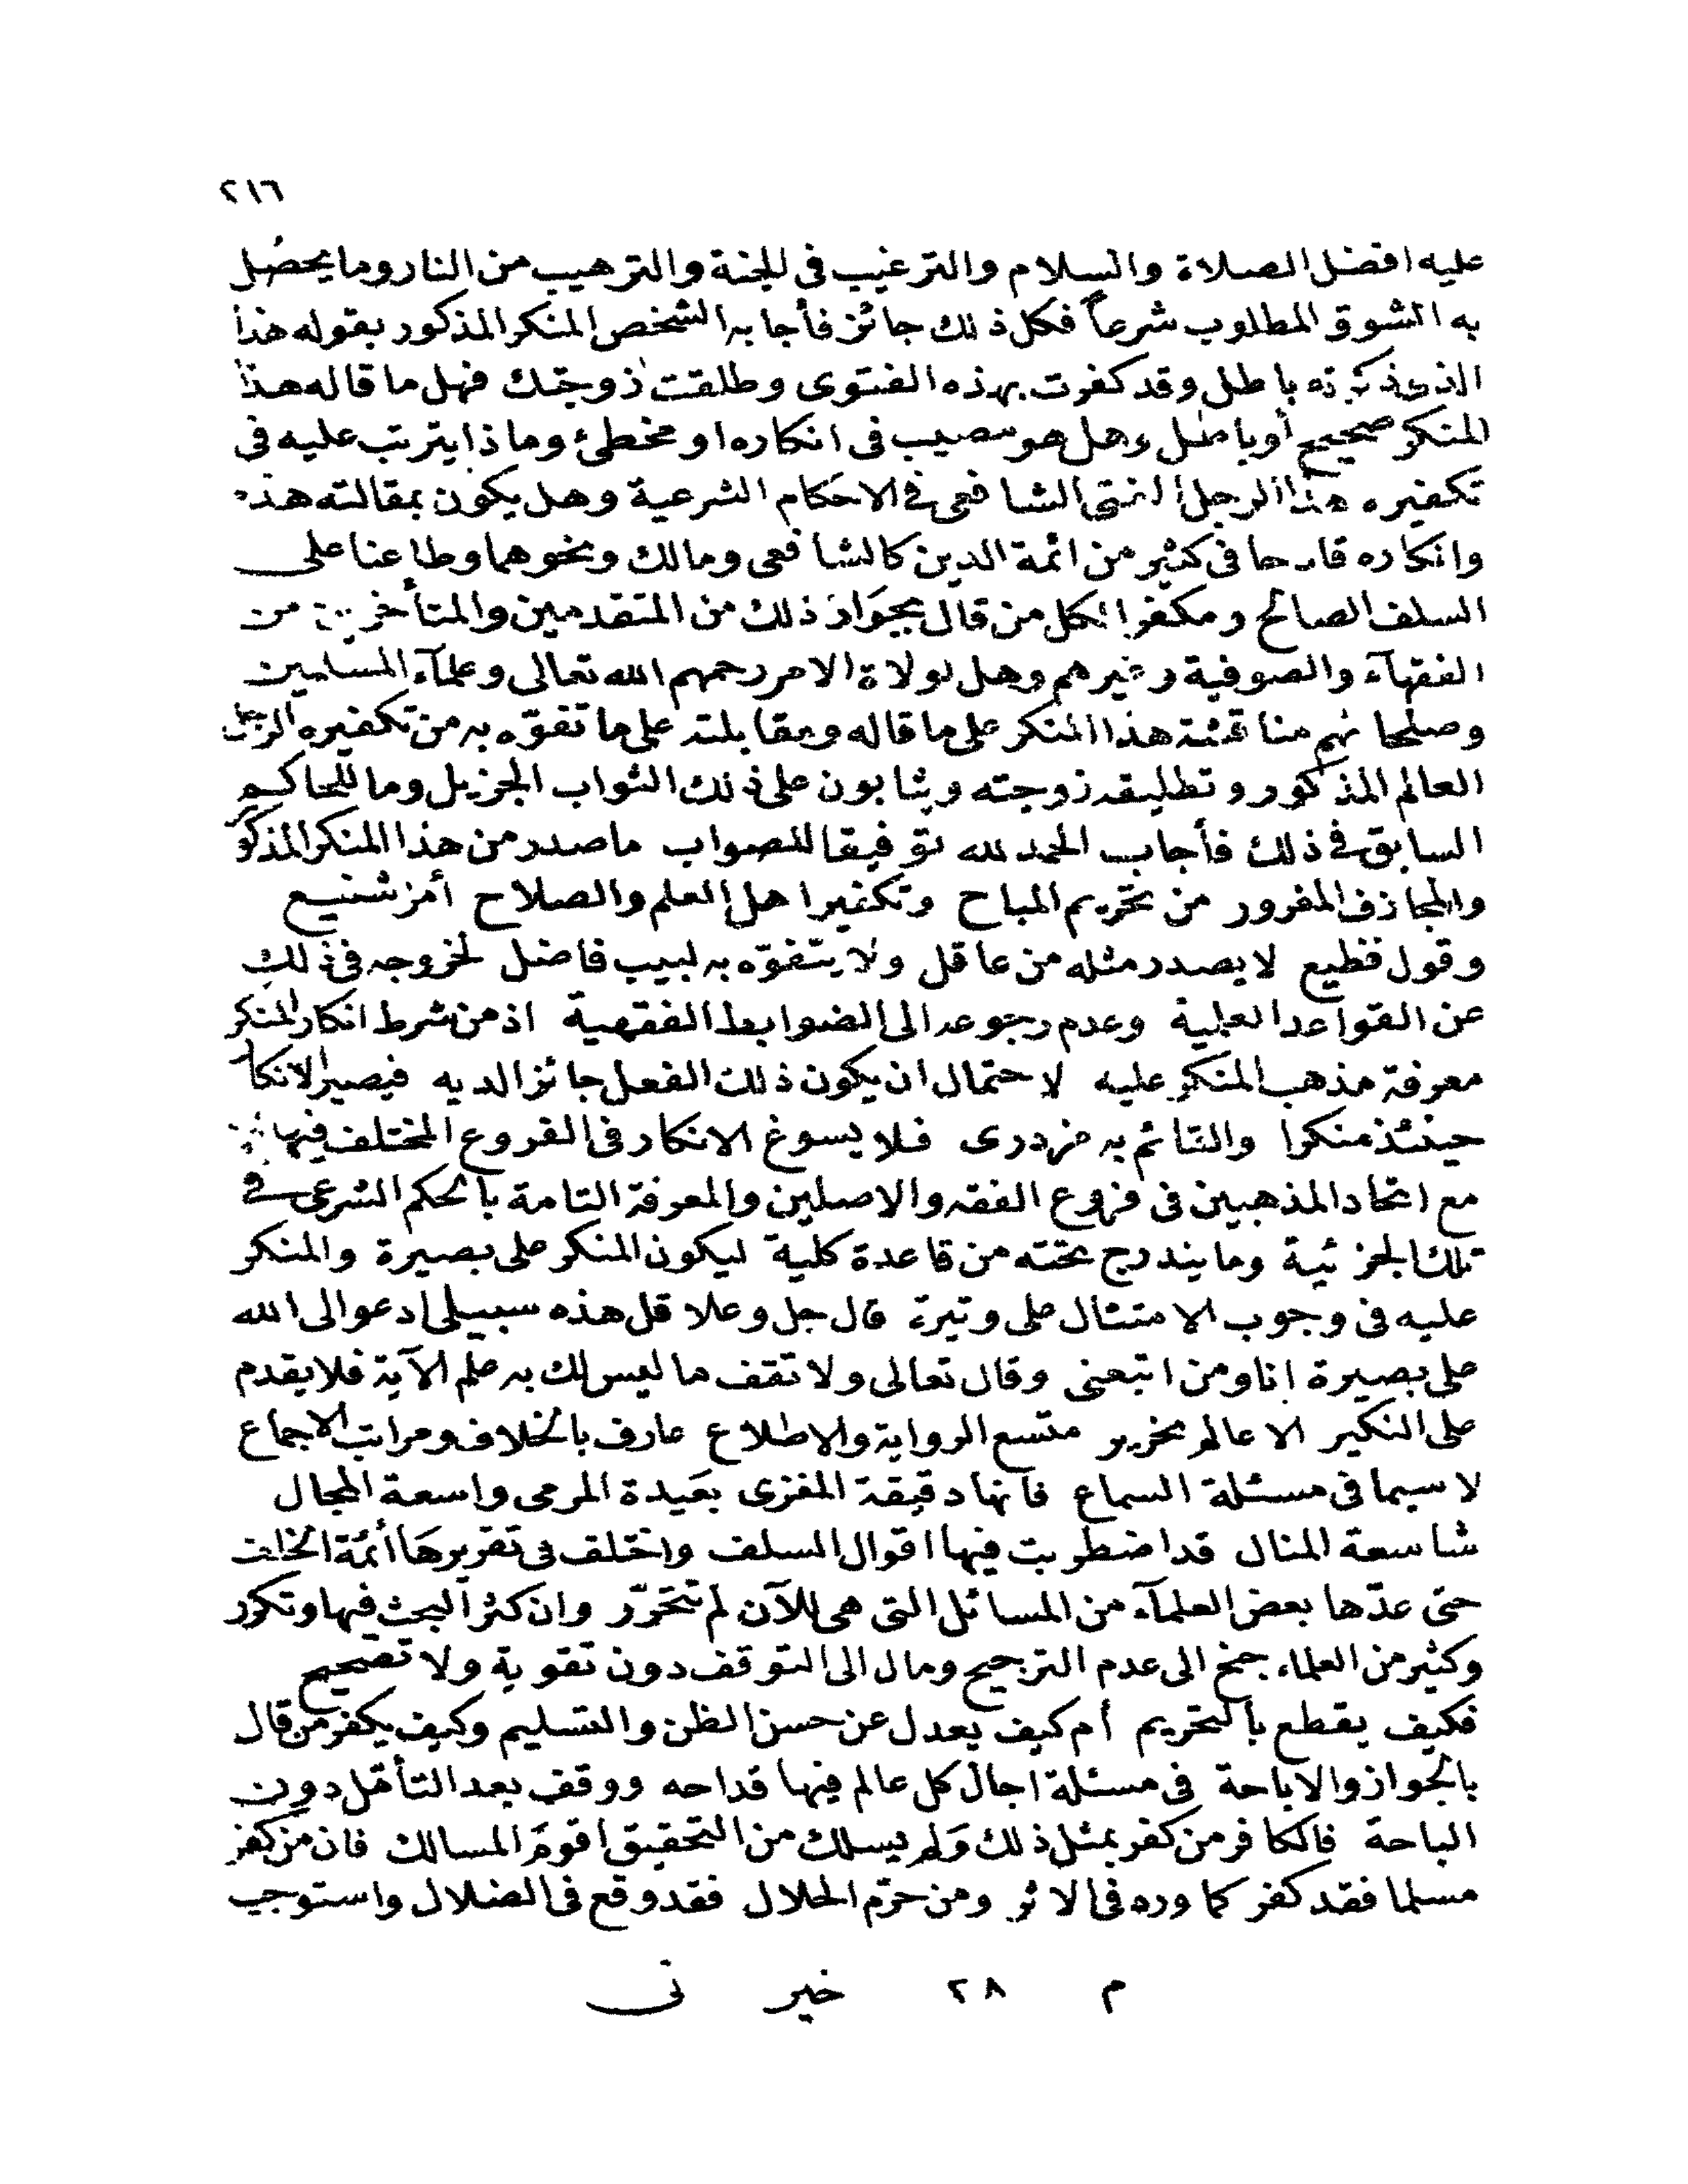 ٢١٦
عليه افضل الصلاة والسلام والترغيب فى الجنة والترهيب من النار وما يحصُل
به الشوق المطلوب شرعاً فكل ذلك جائز فأجابه الشخص المنكر المذكور بقوله هذا
الذى ذكرته باطل وقد كفرت بهذه الفتوى وطلقت زوجتك فهل ما قاله هذا
المنكر صحيح أو باطل وهل هو مصيب فى انكاره او مخطئ وماذا يترتب عليه فى
تكفيره هذا الرجل المفتى الشافعى فى الاحكام الشرعية وهل يكون بمقالته هذه
وانكاره قادحا فى كثير من ائمة الدين كالشافعى ومالك ونحوهما وطاعنا على
السلف الصالح ومكفرا لكل من قال بجواز ذلك من المتقدمين والمتأخرين من
الفقهآء والصوفية وغيرهم وهل لولاة الامر رحمهم الله تعالى وعلمآء المسلمين
وصلحائهم مناقشة هذا المنكر على ما قاله ومقابلته على ما تفوّه به من تكفيره الرجل
العالم المذكور وتطليقه زوجته ويثابون على ذلك الثواب الجزيل وما للحاكم
السابق فى ذلك فأجاب الحمد لله توفيقا للصواب ماصدر من هذا المنكر المذكو
والمجازف المغرور من تحريم المباح وتكفير اهل العلم والصلاح أمر شنيع
وقول فظيع لا يصدر مثله من عاقل ولا يتفوّه به لبيب فاضل لخروجه فى ذلك
عن القواعد العلمية وعدم رجوعه الى الضوابط الفقهية اذ من شرط انكار المنكر
معرفة مذهب المنكر عليه لاحتمال ان يكون ذلك الفعل جائزا لديه فيصير الانكا
حينئذ منكرا والقائم به مزدرى فلا يسوغ الانكار فى الفروع المختلف فيها
مع اتحاد المذهبين فى فروع الفقه والاصلين والمعرفة التامة بالحكم الشرعى فى
تلك الجزئية وما يندرج تحته من قاعدة كلية ليكون المنكر على بصيرة والمنكر
عليه فى وجوب الامتثال على وتيرة قال جل وعلا قل هذه سبيلى ادعو الى الله
على بصيرة انا ومن اتبعنى وقال تعالى ولا تقف ما ليس لك به علم الآية فلا يقدم
على النكير الا عالم نحرير متسع الرواية والاطلاع عارف بالخلاف ومراتب الاجماع
لا سيما فى مسئلة السماع فانها دقيقة المغزى بعيدة المرمى واسعة المجال
شاسعة المنال قد اضطربت فيها اقوال السلف واختلف فى تقريرها أئمة الخلف
حتى عدّها بعض العلمآء من المسائل التى هى للآن لم تتحرّر وان كثر البحث فيها وتكرر
وكثير من العلماء جنح الى عدم الترجيح ومال الى التوقف دون تقوية ولا تصحيح
فكيف يقطع بالتحريم أم كيف يعدل عن حسن الظن والتسليم وكيف يكفر من قال
بالجواز والاباحة فى مسئلة اجال كل عالم فيها قداحه ووقف بعد التأمّل دون
الباحة فالكافر من كفر بمثل ذلك ولم يسلك من التحقيق اقوم المسالك فان من كفر
مسلما فقد كفر كما ورد فى الاثر ومن حرّم الحلال فقد وقع فى الضلال واستوجب
م ٢٨ خير نى